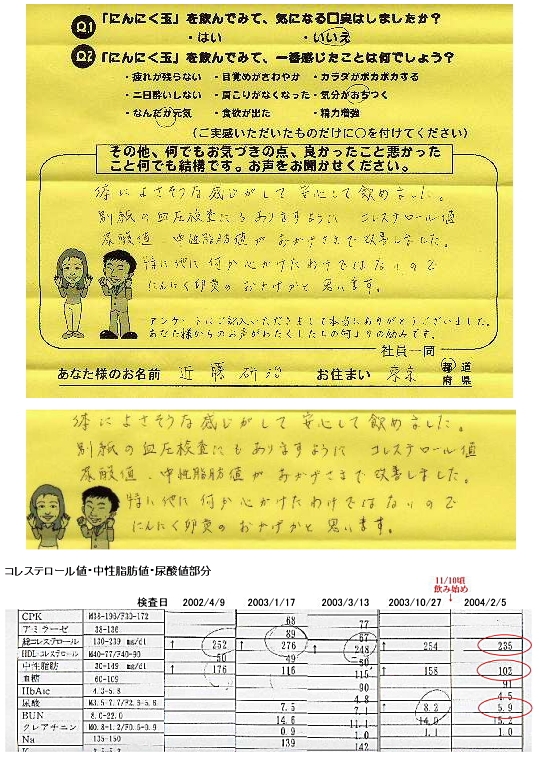 Q.1 「にんにく玉」を飲んでみて、気になる口臭はしましたか？
・はい ・いいえ
Q.2 「にんにく玉」を飲んでみて、一番感じたことは何でしょう？
・疲れが残らない ・目覚めがさわやか ・カラダがポカポカする
・二日酔いしない ・肩こりがなくなった ・気分がおちつく
・なんだか元気 ・食欲が出た ・精力増強
（ご実感いただいたものだけに〇を付けてください）
その他、何でもお気づきの点、良かったこと悪かった
こと何でも結構です。お声をお聞かせください。
体によさそうな感じがして安心して飲めました。
別紙の血圧検査にもありますように コレステロール値
尿酸値、中性脂肪値が おかげさまで改善しました。
特に他に何か心かけたわけではないので
にんにく卵黄のおかげかと思います。
アンケートにご記入いただきまして本当にありがとうございました。
あなた様からのお声がわたくしたちの何よりの励みです。
社員一同
あなた様のお名前 近藤研治 お住まい 東京 都道府県
体によさそうな感じがして安心して飲めました。
別紙の血圧検査にもありますように コレステロール値
尿酸値、中性脂肪値が おかげさまで改善しました。
特に他に何か心かけたわけではないので
にんにく卵黄のおかげかと思います。
コレステロール値・中性脂肪値・尿酸値部分
11/10頃
飲み始め
検査日 2002/4/9 2003/1/17 2003/3/13 2003/10/27 2004/2/5
CPK M38-196/F30-172 68 77
アミラーゼ 38-136 89 67
総コレステロール 130-239 mg/dl ↑ 262 ↑ 276 ↑ 248 ↑ 254 235
HDL-コレステロール M40-77/F40-90 50 49 50
中性脂肪 30-149 mg/dl ↑ 176 116 115 ↑ 158 102
血糖 60-109 90 91
HbA1c 4.3-5.8 4.8 4.5
尿酸 7.5 7.1 ↑ 8.2 5.9
BUN 8.0-22.0 14.6 11.1 14.0 15.2
クレアチニン 0.9 1.0 1.1 1.0
Na 135-150 139 142